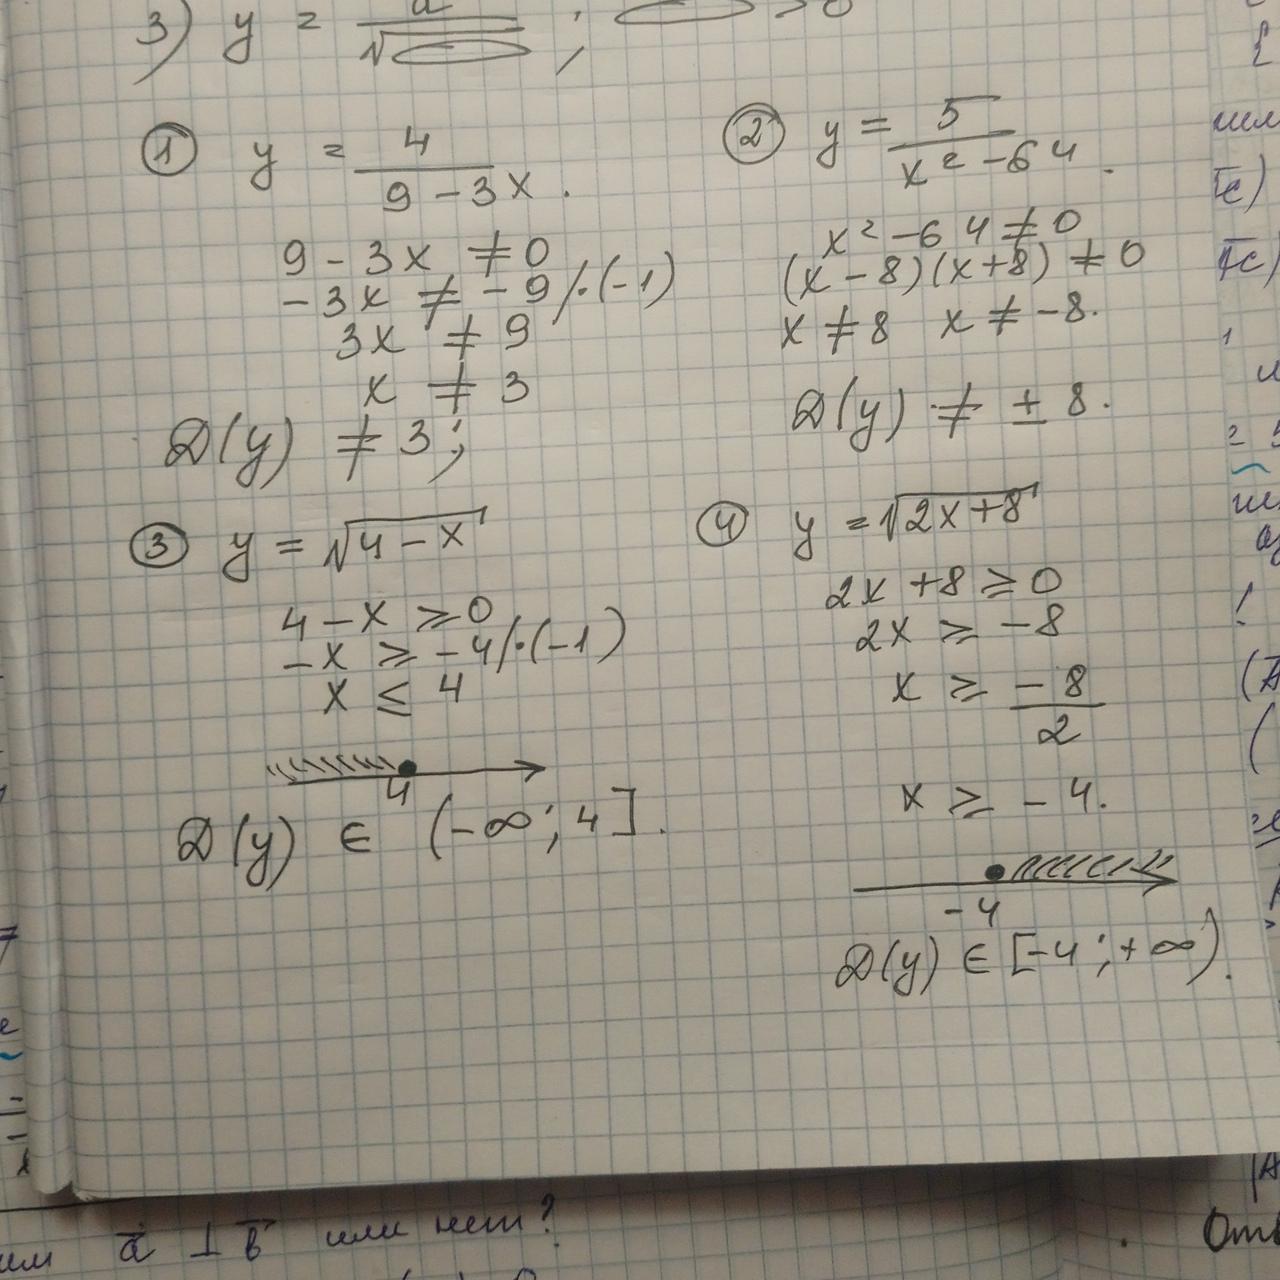 3) y = a/√ ; > 0
① y = 4/(9 - 3x).
9 - 3x ≠ 0
-3x ≠ -9 /·(-1)
3x ≠ 9
x ≠ 3
D(y) ≠ 3;
② y = 5/(x² - 64).
x² - 64 ≠ 0
(x - 8)(x + 8) ≠ 0
x ≠ 8 x ≠ -8.
D(y) ≠ ± 8.
③ y = √(4 - x)
4 - x ≥ 0
-x ≥ -4 /·(-1)
x ≤ 4
4
D(y) ∈ (-∞; 4].
④ y = √(2x + 8)
2x + 8 ≥ 0
2x ≥ -8
x ≥ -8/2
x ≥ -4.
-4
D(y) ∈ [-4; +∞).
a⃗ ⊥ b⃗ или нет?